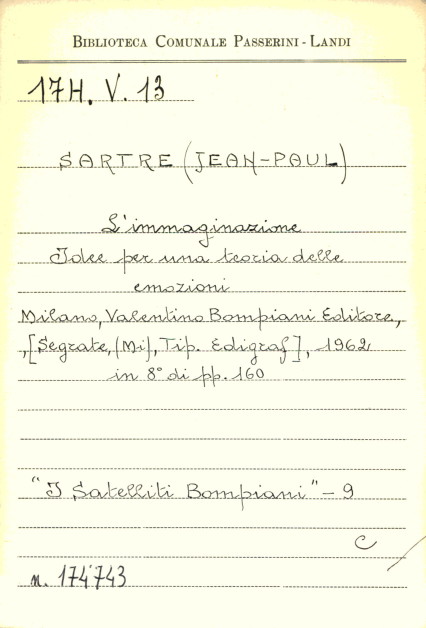 BIBLIOTECA COMUNALE PASSERINI-LANDI
17H. V. 13
SARTRE (JEAN-PAUL)
L'immaginazione
Idee per una teoria delle
emozioni
Milano, Valentino Bompiani Editore,
,[Segrate, (Mi), Tip. Edigraf], 1962
in 8° di pp. 160
"I Satelliti Bompiani" - 9
C
n. 174'743